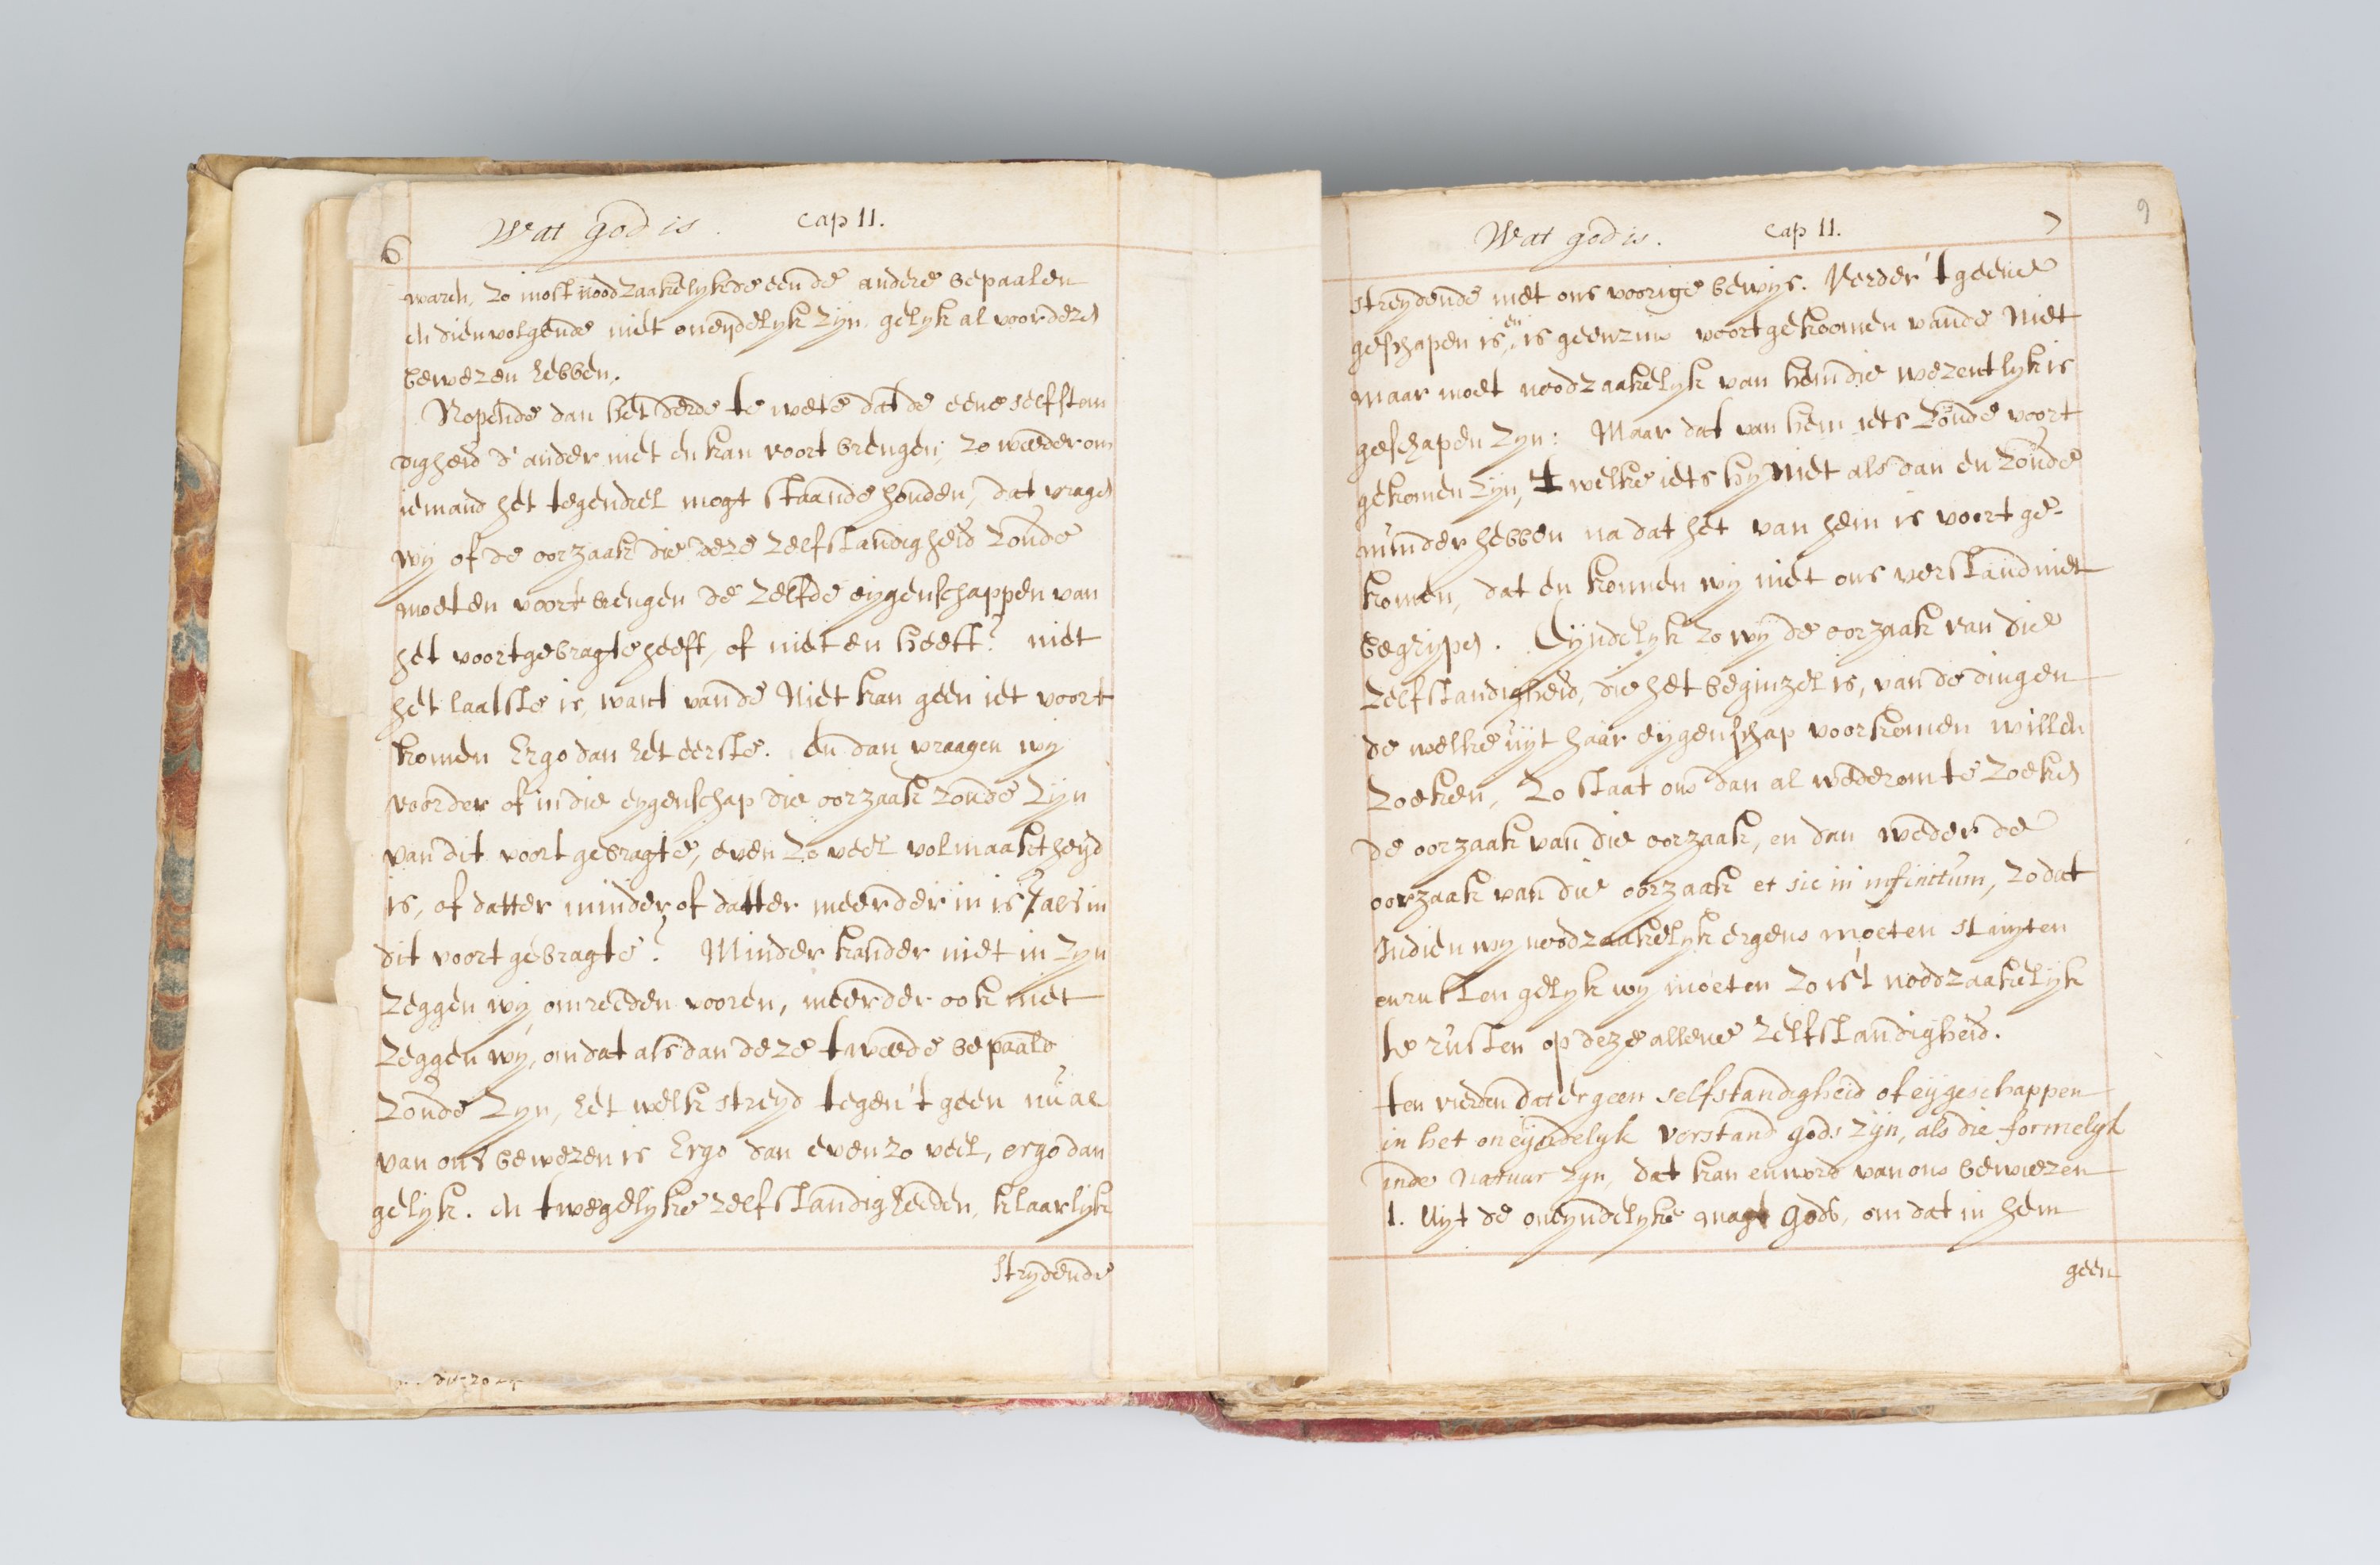 6
Wat god is. Cap 11.
waren, zo most noodzaakelyk de een de andere bepaalen
en dienvolgende niet oneyndelyk zyn, gelyk al voor dezen
bewezen hebben.
Nopende dan het derde te weten dat de eene selfstan
digheid d'ander niet en kan voort brengen; zo wederom
iemand het tegendeel mogt staande houden, dat vragen
wy of de oorzaak die deze zelfstandigheid zoude
moeten voort brengen de zelfde eygenschappen van
het voortgebragte heeft, of niet en heeft? niet
het laatste is, want van de Niet kan geen iet voort
komen Ergo dan het eerste. en dan vraagen wy
voorder of in die eygenschap die oorzaak zoude zyn
van dit voort gebragte, even zo veel volmaaktheyd
is, of datter minder of datter meerder in is, als in
dit voort gebragte? Minder kander niet in zyn
zeggen wy, om reeden vooren, meerder ook niet
zeggen wy, omdat als dan deze tweede bepaald
zoude zyn, het welk streyd tegen 't geen nu al
van ons bewezen is Ergo dan even zo veel, ergo dan
gelyk. en twe gelyke zelfstandigheeden, klaarlyk
strydende
Wat god is. Cap 11. 7
9
streydende met ons voorige bewys. Verder 't geene
geschapen is, en is geenzins voortgekoomen van de Niet
maar moet noodzaakelyk van hem die wezentlyk is
geschapen zyn: Maar dat van hem iets zoude voort
gekomen zyn, 't welke iets hy Niet als dan en zoude
minder hebben na dat het van hem is voort ge-
komen, dat en konnen wy met ons verstand niet
begrypen. Eyndelyk zo wy de oorzaak van die
zelfstandigheid, die het beginzel is, van de dingen
de welke uyt haar eygenschap voorkomen willen
zoeken, zo staat ons dan al wederom te zoeken
de oorzaak van die oorzaak, en dan weder de
oorzaak van die oorzaak et sic in infinitum, zodat
Indien wy noodzaakelyk ergens moeten stuyten
en rusten gelyk wy moeten zo is't noodzaakelyk
te rusten op deze allene zelfstandigheid.
ten vierden dat er geen selfstandigheid of eygeschappen
in het oneyndelyk verstand gods zyn, als die formelyk
inde Natuur zyn, dat kan en word van ons bewezen
1. Uyt de oneyndelyke magt gods, om dat in hem
geen